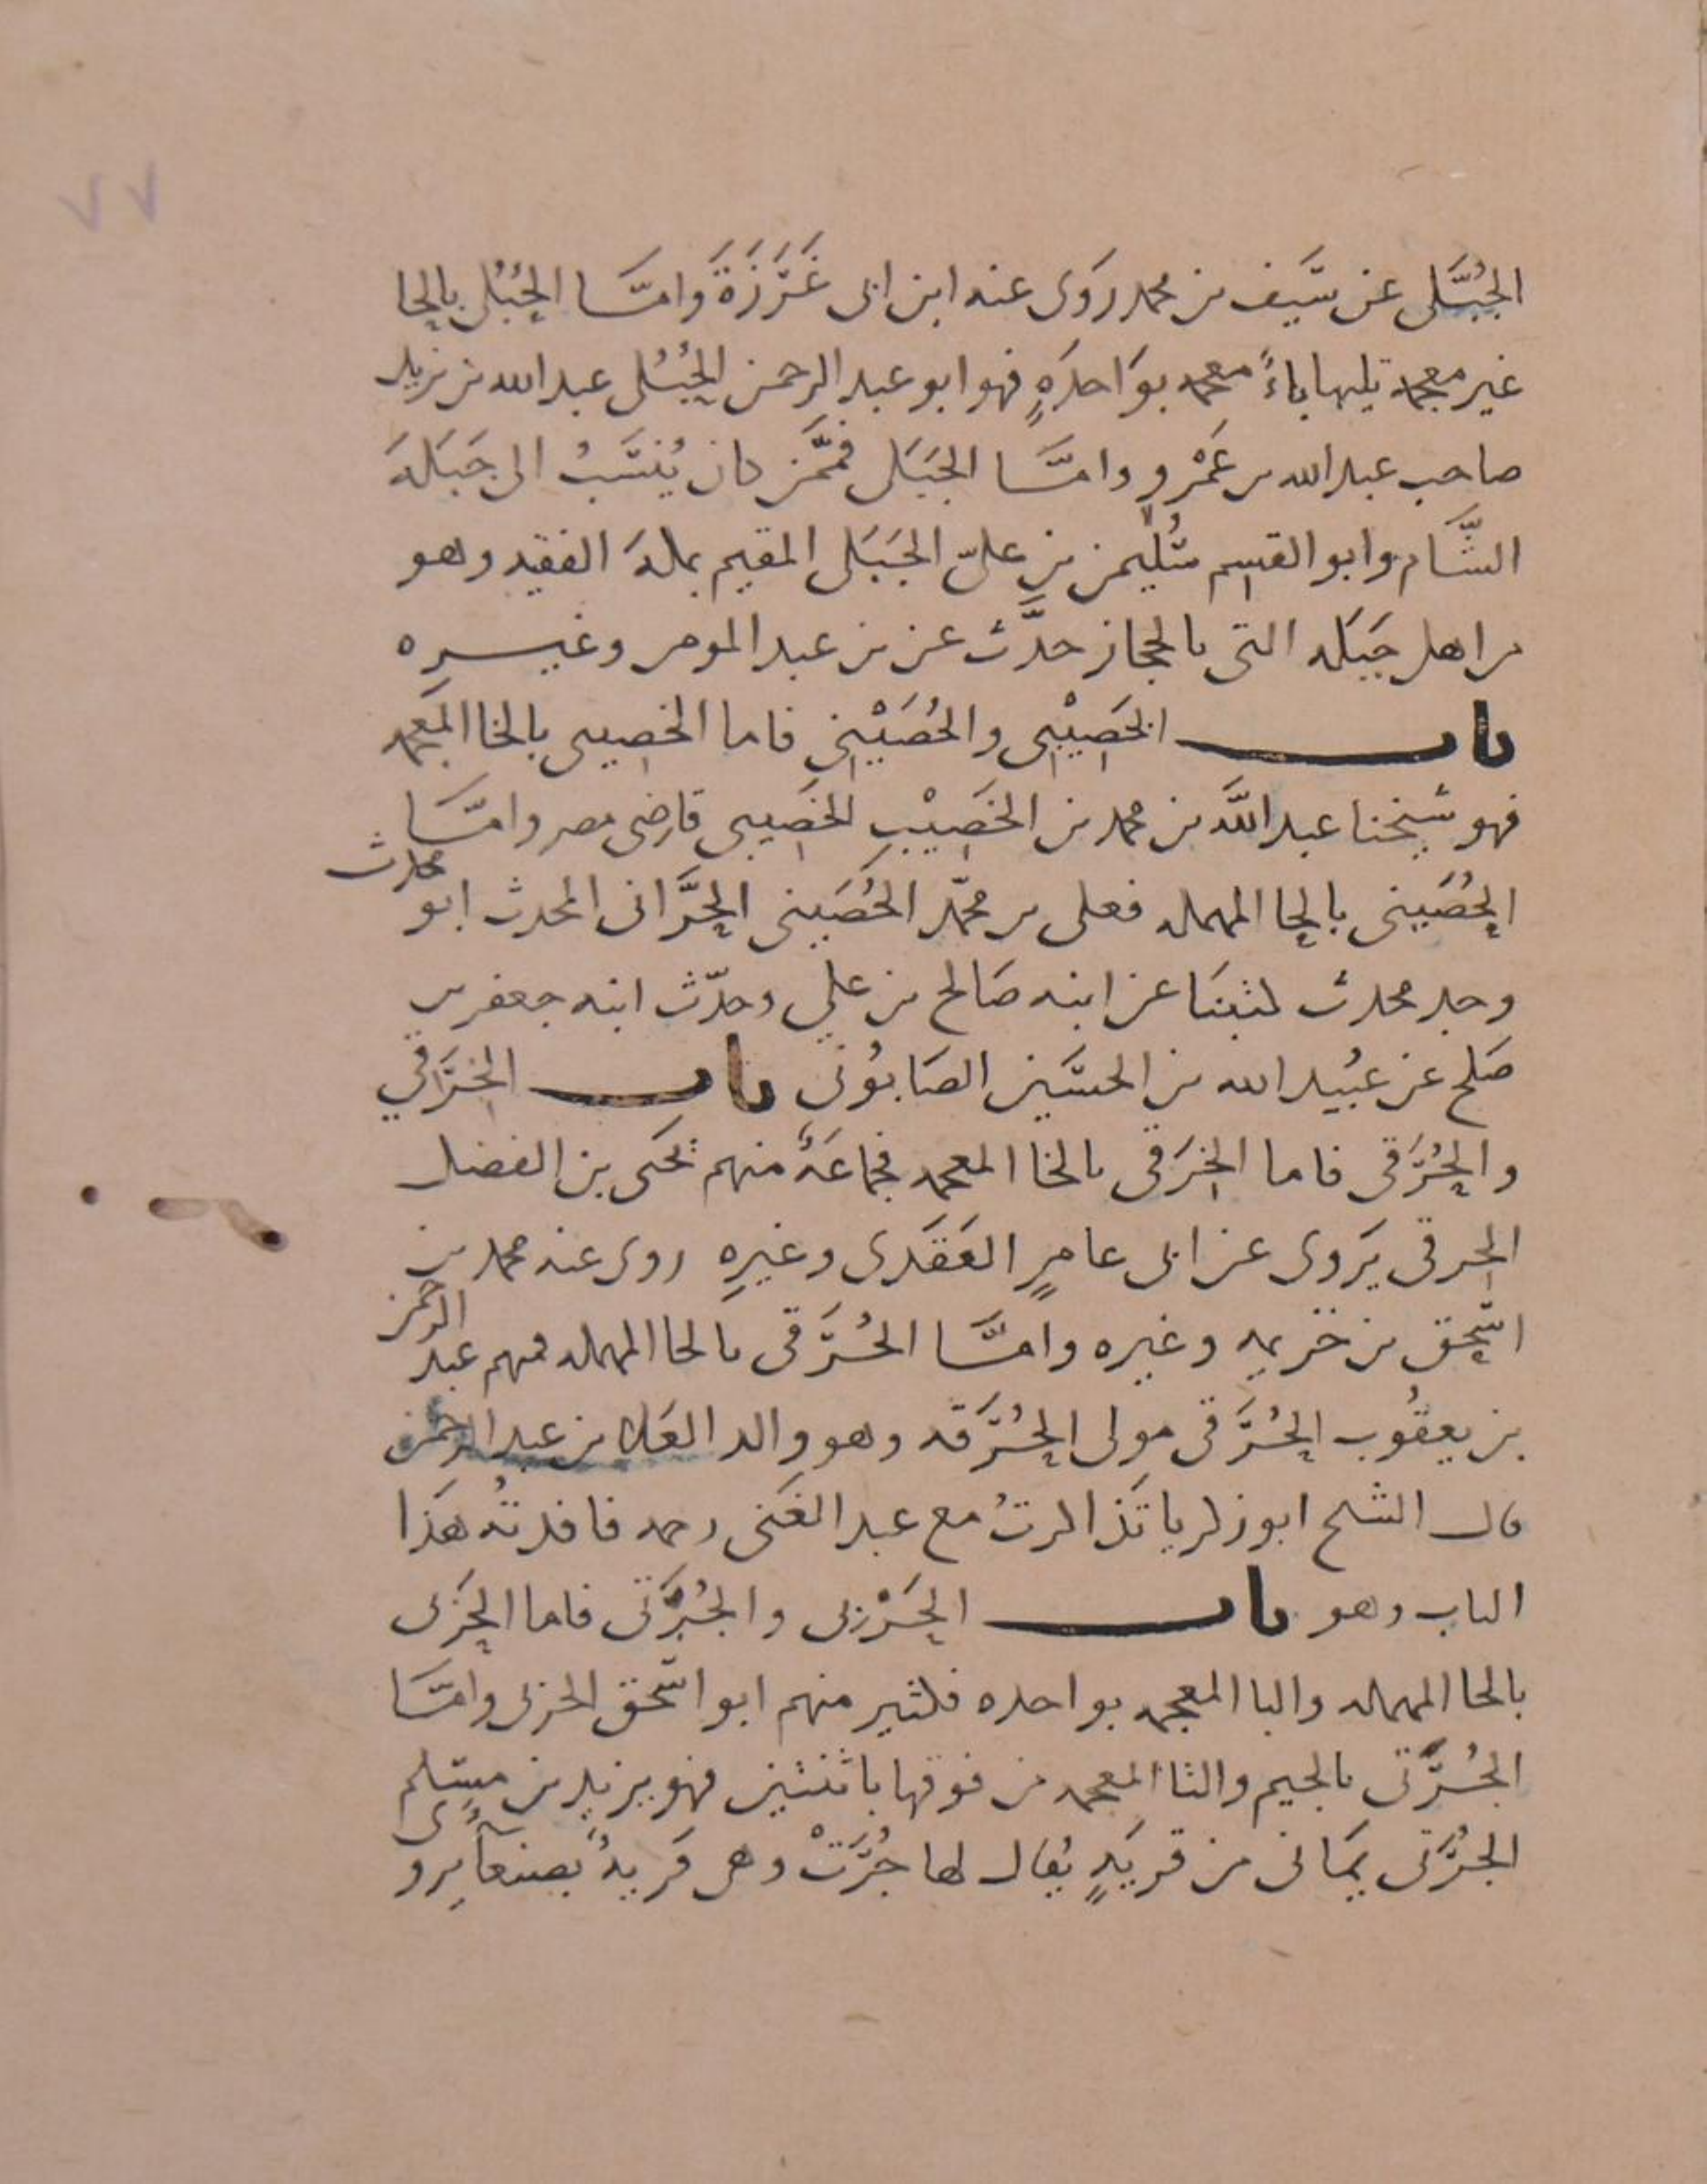 ٧٧
الجُبُّلى عن سَيف بن محمد رَوَى عنه ابن ابى غَرَزَةَ وَامَّا الحُبُلى بالحا
غير معجمه تليها باءً معجمه بوَاحدَهٍ فهو ابو عبد الرحمن الحُبُلى عبد الله بن يزيد
صاحب عبد الله بن عَمْرٍو وامَّا الجَبَلى فمَّمن كان يُنسَبُ الى جَبَلهَ
الشَّام وابو القسم سُليمن بن علىّ الجَبَلى المقيم بمكهَ الفقيه وهو
من اهل جَبَله التى بالحجاز حدَّث عن بن عبد المومن وغيره
باب الخَصِيْبِى والحُصَيْنِى فاما الخصيبى بالخا المعجمه
فهو شيخنا عبد اللَّه بن محمد بن الخَصِيْبِ الخصِيبى قاضِى مصر وامَّا
الحُصَينى بالحا المهمله فعلى بن محمّد الحُصَينى الحَرَّانى المحدث ابو محدث
وجد محدث كتبنَا عن ابنه صَالح بن علي وحدّث ابنه جعفر بن
صَلح عن عُبَيد الله بن الحسَين الصَابُونى باب الخِرَقي
والحُرَقى فاما الخِرَقى بالخا المعجمه فجماعَهٌ منهم يحَيى بن الفضل
الخرقى يَروى عن ابى عامرٍ العَقَدى وغيرِه روى عنه محمد بن
اسحق بن خزيمه وغيره وامَّا الحُرَقى بالحا المهمله فمنهم عبد الرحمن
بن يعقُوب الحُرَقى مولى الحُرَقه وهو والد العَلا بن عبد الرحمن
قال الشيخ ابو زكريا تَذاكرتُ مع عبد الغَنى رحمه فافدتهُ هَذا
الباب وهو باب الحَرْبى والجُرَتى فاما الحَربى
بالحا المهمله والبا المعجمه بواحده فكثير منهم ابو اسحق الحربى وامَّا
الجُرَتى بالجيم والتا المعجمه من فوقها باثنتين فهو يزيد بن مسلم
الجُرَتى يمَانى من قريَهٍ يُقال لها جُرَتْ وهى قَريهٌ بصنعاَ يروى